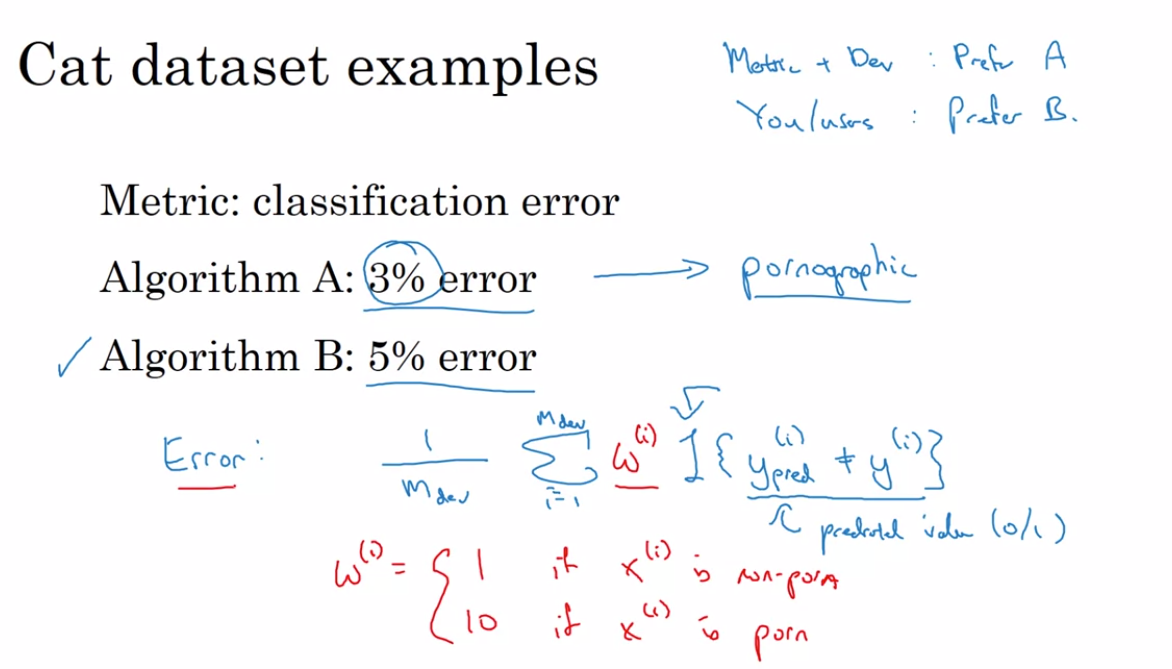 Cat dataset examples
Metric + Dev : Prefer A
You/users : Prefer B.
Metric: classification error
Algorithm A: 3% error → pornographic
✓ Algorithm B: 5% error
Error: 1/m_dev Σ_{i=1}^{m_dev} w^(i) I{y_pred^(i) ≠ y^(i)}
predicted value (0/1)
w^(i) = { 1 if x^(i) is non-porn
10 if x^(i) is porn